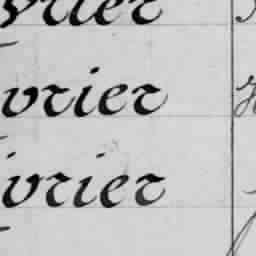 vrier
vrier
vrier